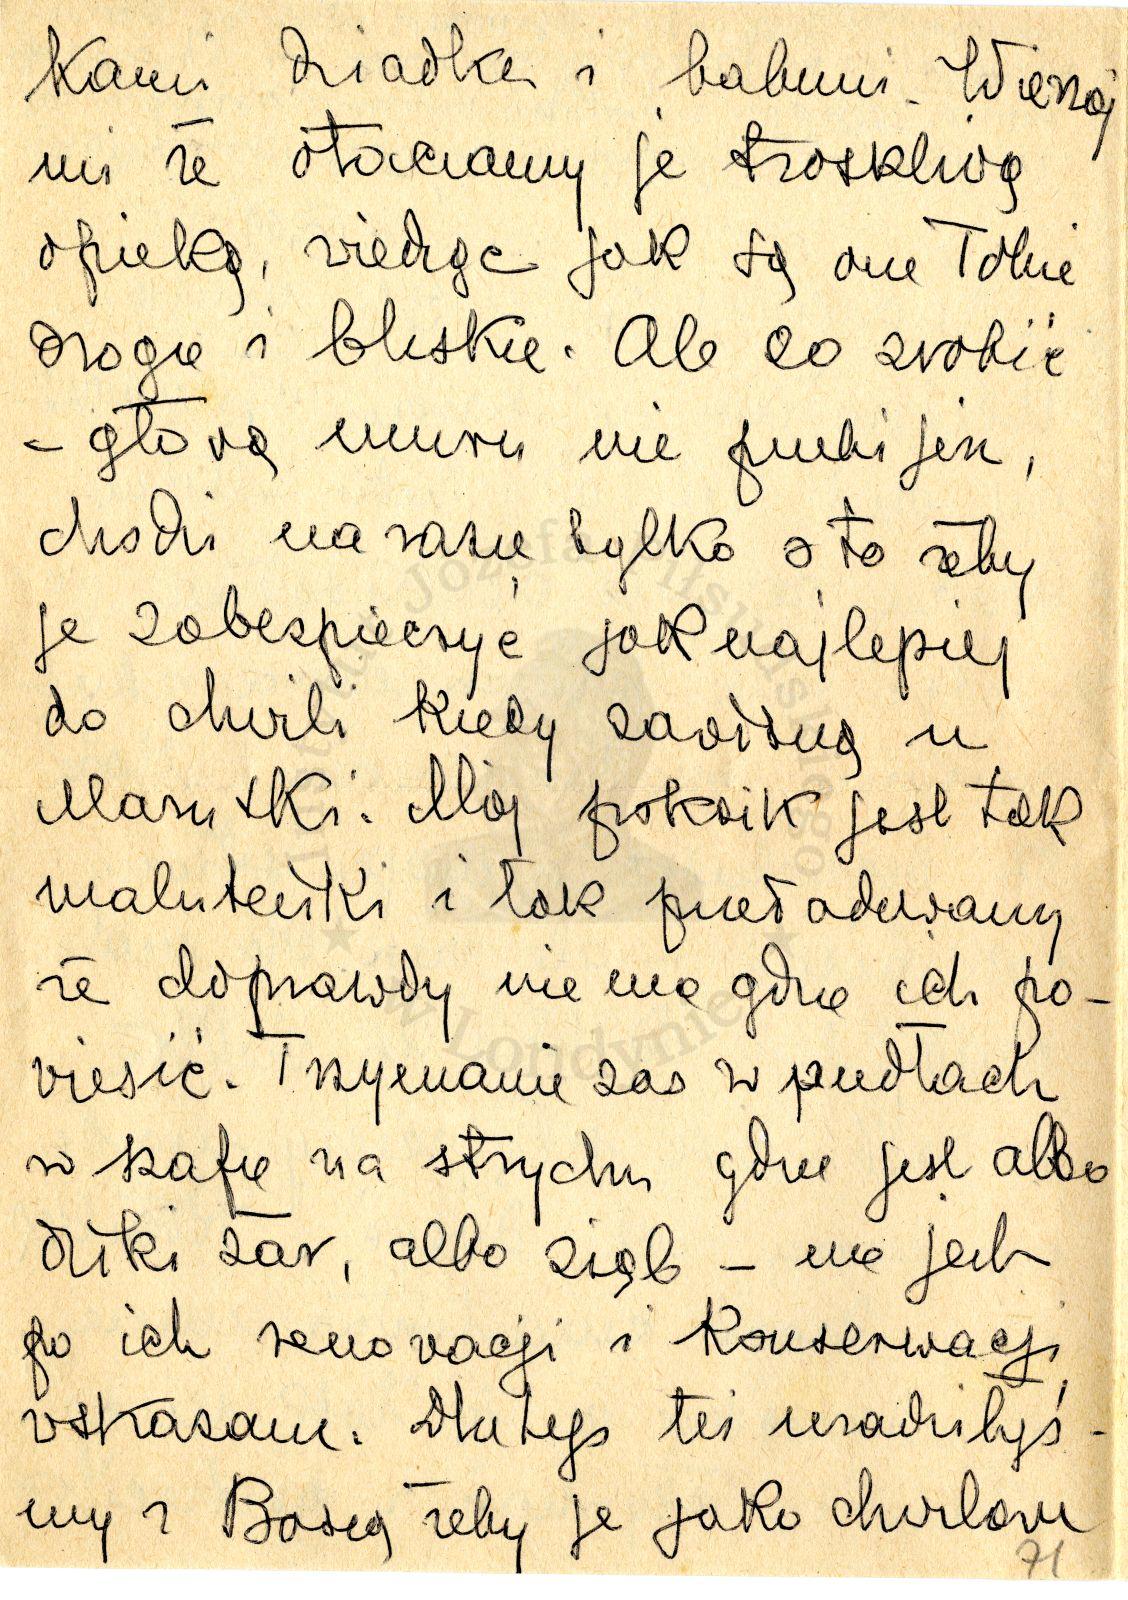 kami dziadka i babuni. Wierzaj
mi że otaczamy je troskliwą
opieką, wiedząc jak są one Tobie
drogie i bliskie. Ale co zrobić
– głową muru nie przebijesz,
chodzi na razie tylko o to żeby
je zabezpieczyć jaknajlepiej
do chwili kiedy zawisną u
Marutki. Mój pokoik jest tak
maluteńki i tak przeładowany
że doprawdy nie ma gdzie ich po-
wiesić. Trzymanie zaś w pudłach
w szafie na strychu gdzie jest albo
dziki żar, albo ziąb – nie jest
po ich renowacji i konserwacji
wskazane. Dlatego też uradziłyś-
my z Bozią żeby je jako chwilowe
71
Józefa Piłsudskiego
w Londynie